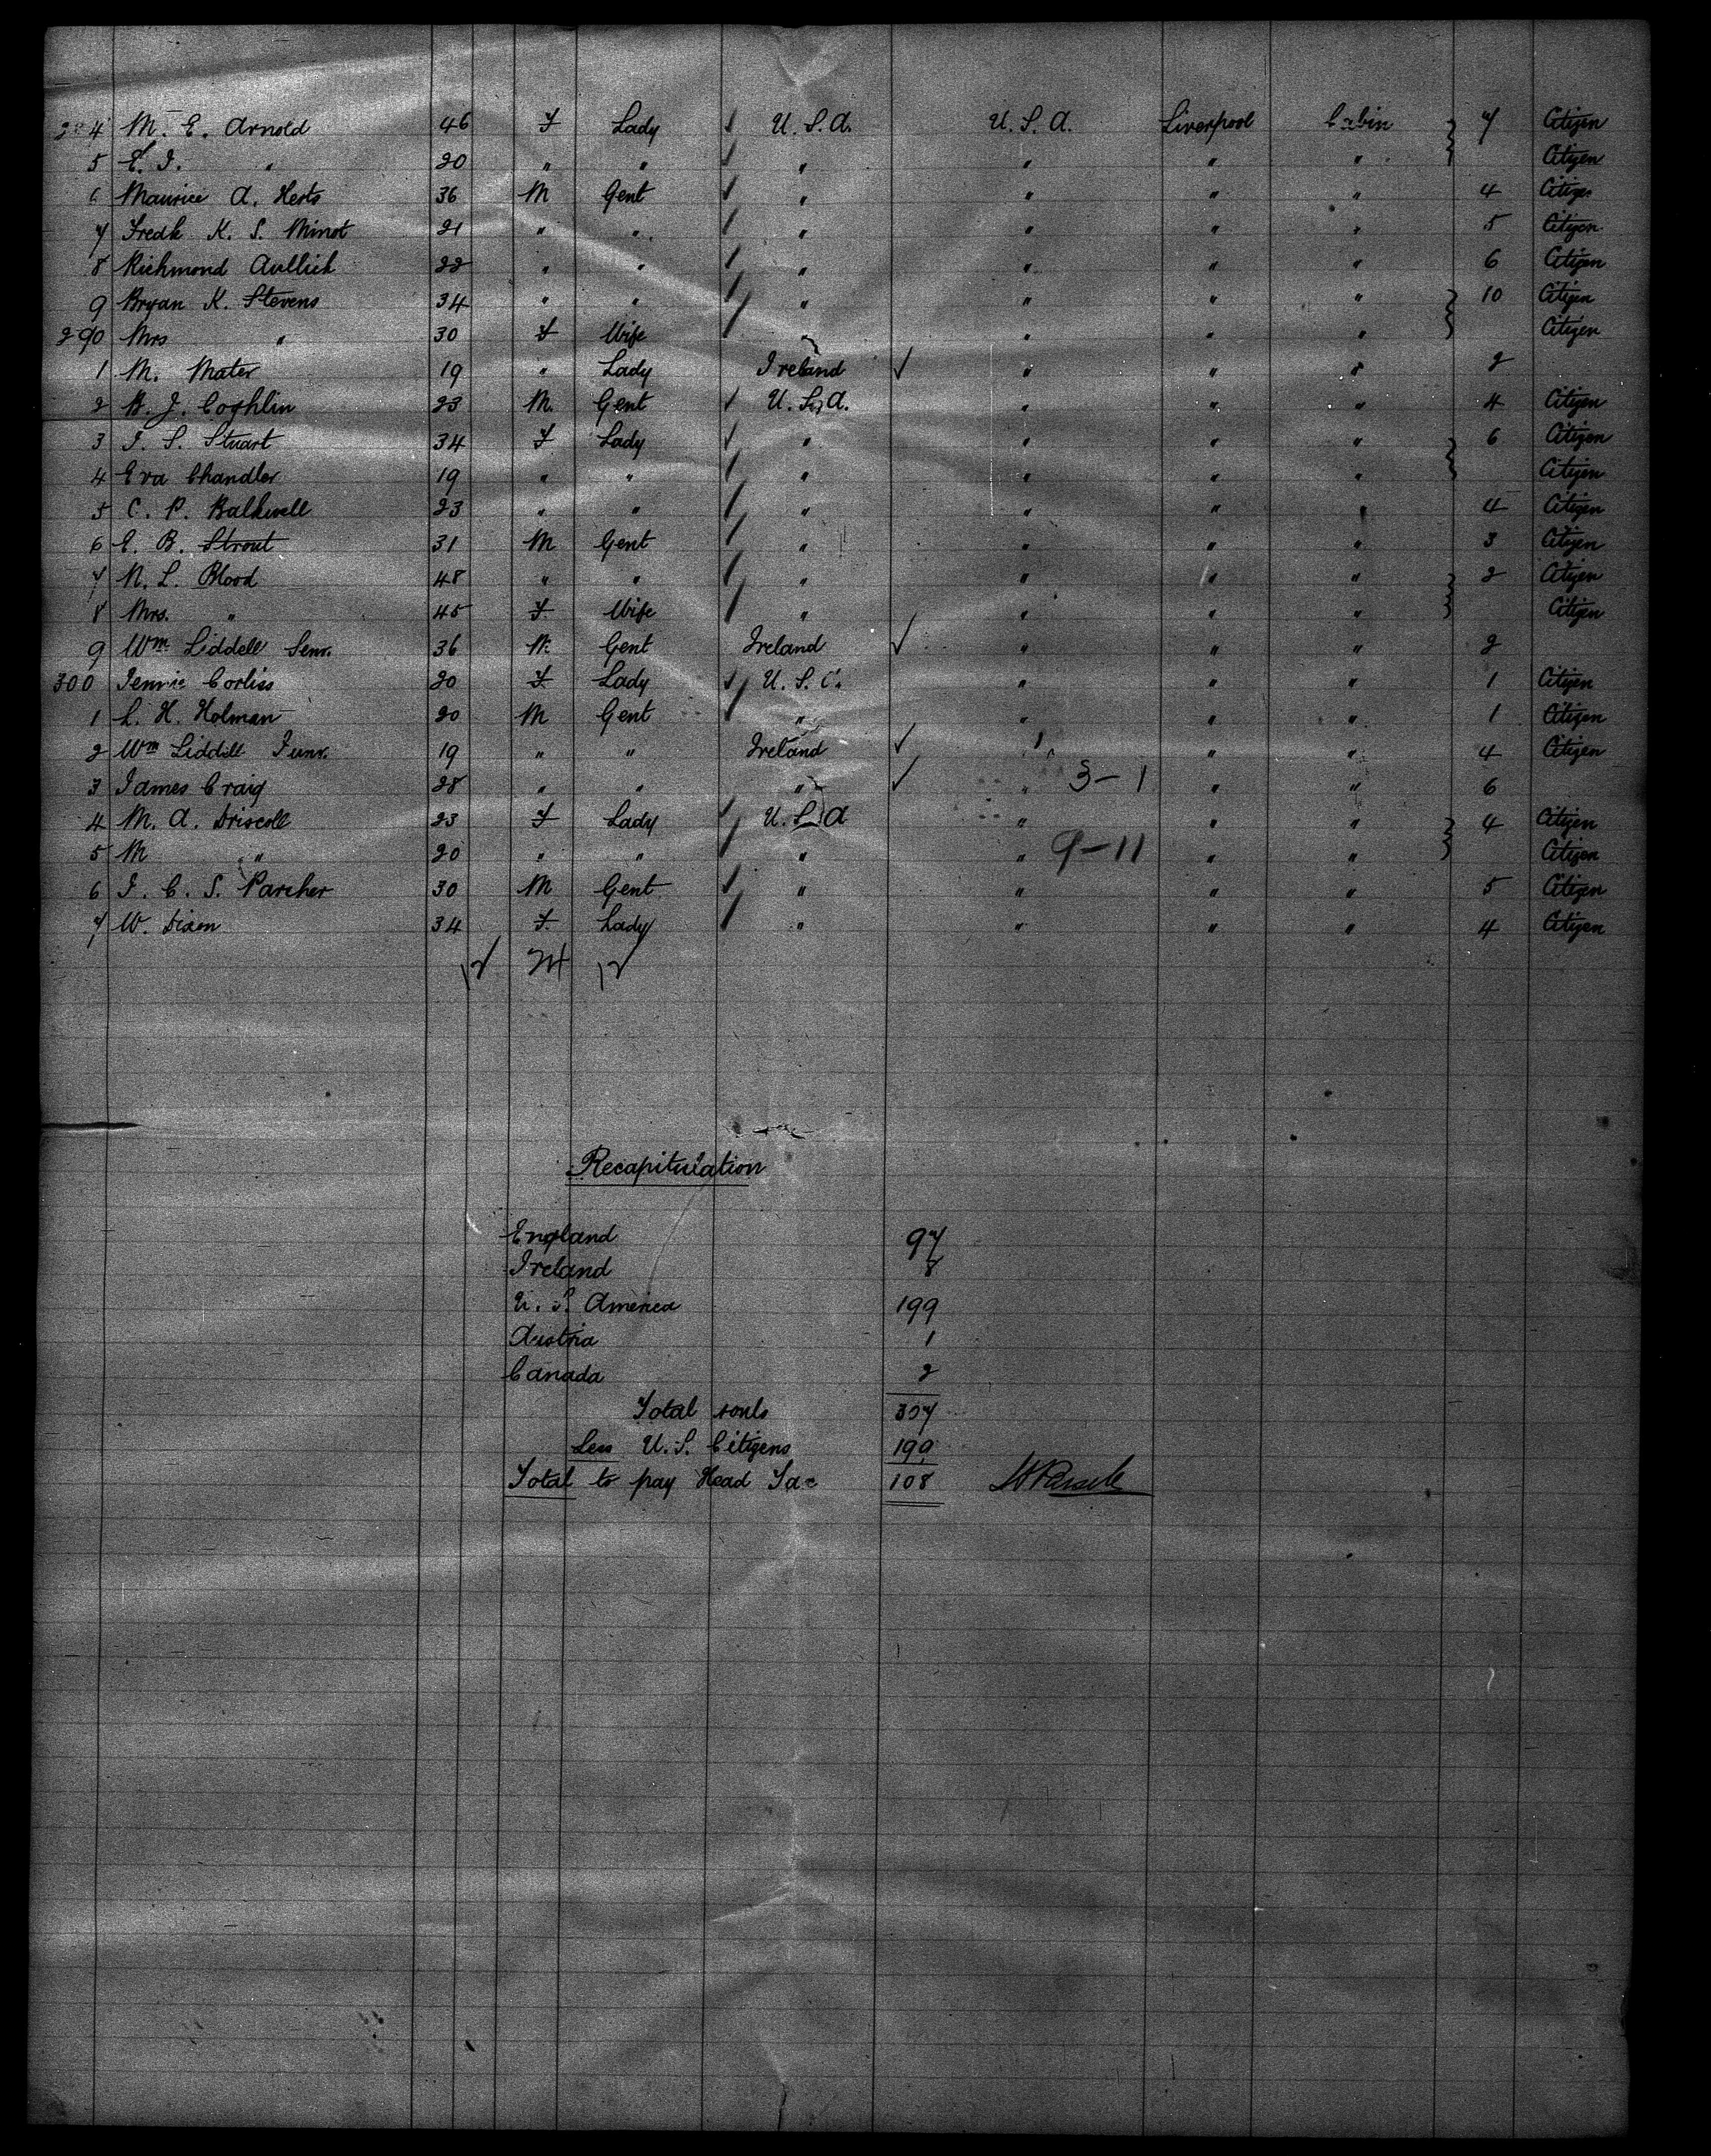 284 M. E. Arnold 46 F Lady U. S. A. U. S. A. Liverpool Cabin 7 Citizen
5 E. J. " 20 " " " " " " Citizen
6 Maurice A. Herts 36 M Gent " " " " 4 Citizen
7 Fredk K. S. Minot 21 " " " " " " 5 Citizen
8 Richmond 22 " " " " " " 6 Citizen
9 Bryan K. Stevens 34 " " " " " " 10 Citizen
290 Mrs " 30 F Wife " " " " Citizen
1 M. Mater 19 " Lady Ireland " " " 2
2 B. J. Coghlin 23 M. Gent U. S. A. " " " 4 Citizen
3 J. S. Stuart 34 F Lady " " " " 6 Citizen
4 Eva Chandler 19 " " " " " " Citizen
5 C. P. Balkwell 23 " " " " " " 4 Citizen
6 E. B. Strout 31 M Gent " " " " 3 Citizen
7 N. L. Blood 48 " " " " " " 2 Citizen
8 Mrs. " 45 F. Wife " " " " Citizen
9 Wm Liddell Senr. 36 M. Gent Ireland " " " 2
300 Jennie Corliss 20 F Lady U. S. " " " 1 Citizen
1 L. H. Holman 20 M Gent " " " " 1 Citizen
2 Wm Liddell Junr. 19 " " Ireland " " " 4 Citizen
3 James Craig 28 " " " " 3-1 " " 6
4 M. A. Driscoll 23 F Lady U. S. A " " " 4 Citizen
5 M " 20 " " " " 9-11 " " Citizen
6 J. C. S. Parcher 30 M Gent " " " " 5 Citizen
7 W. Dixon 34 F. Lady " " " " 4 Citizen
24
Recapitulation
England 97
Ireland 8
U. S. America 199
Austria 1
Canada 2
Total souls 307
Less U. S. Citizens 199
Total to pay Head Tax 108